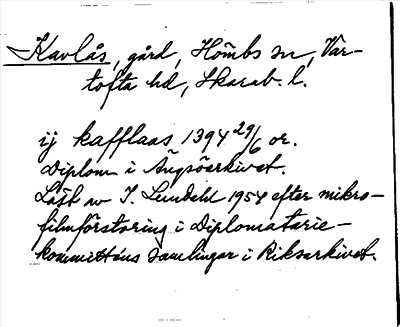 Kavlås, gård, Hömbs sn, Var-
tofta hd, Skarab. l.
ij kafflaas 1394 29/6 or.
Diplom i Ängsöarkivet.
Läst av I. Lundahl 1954 efter mikro-
filmförstoring i Diplomatarie-
kommitténs samlingar i Riksarkivet.